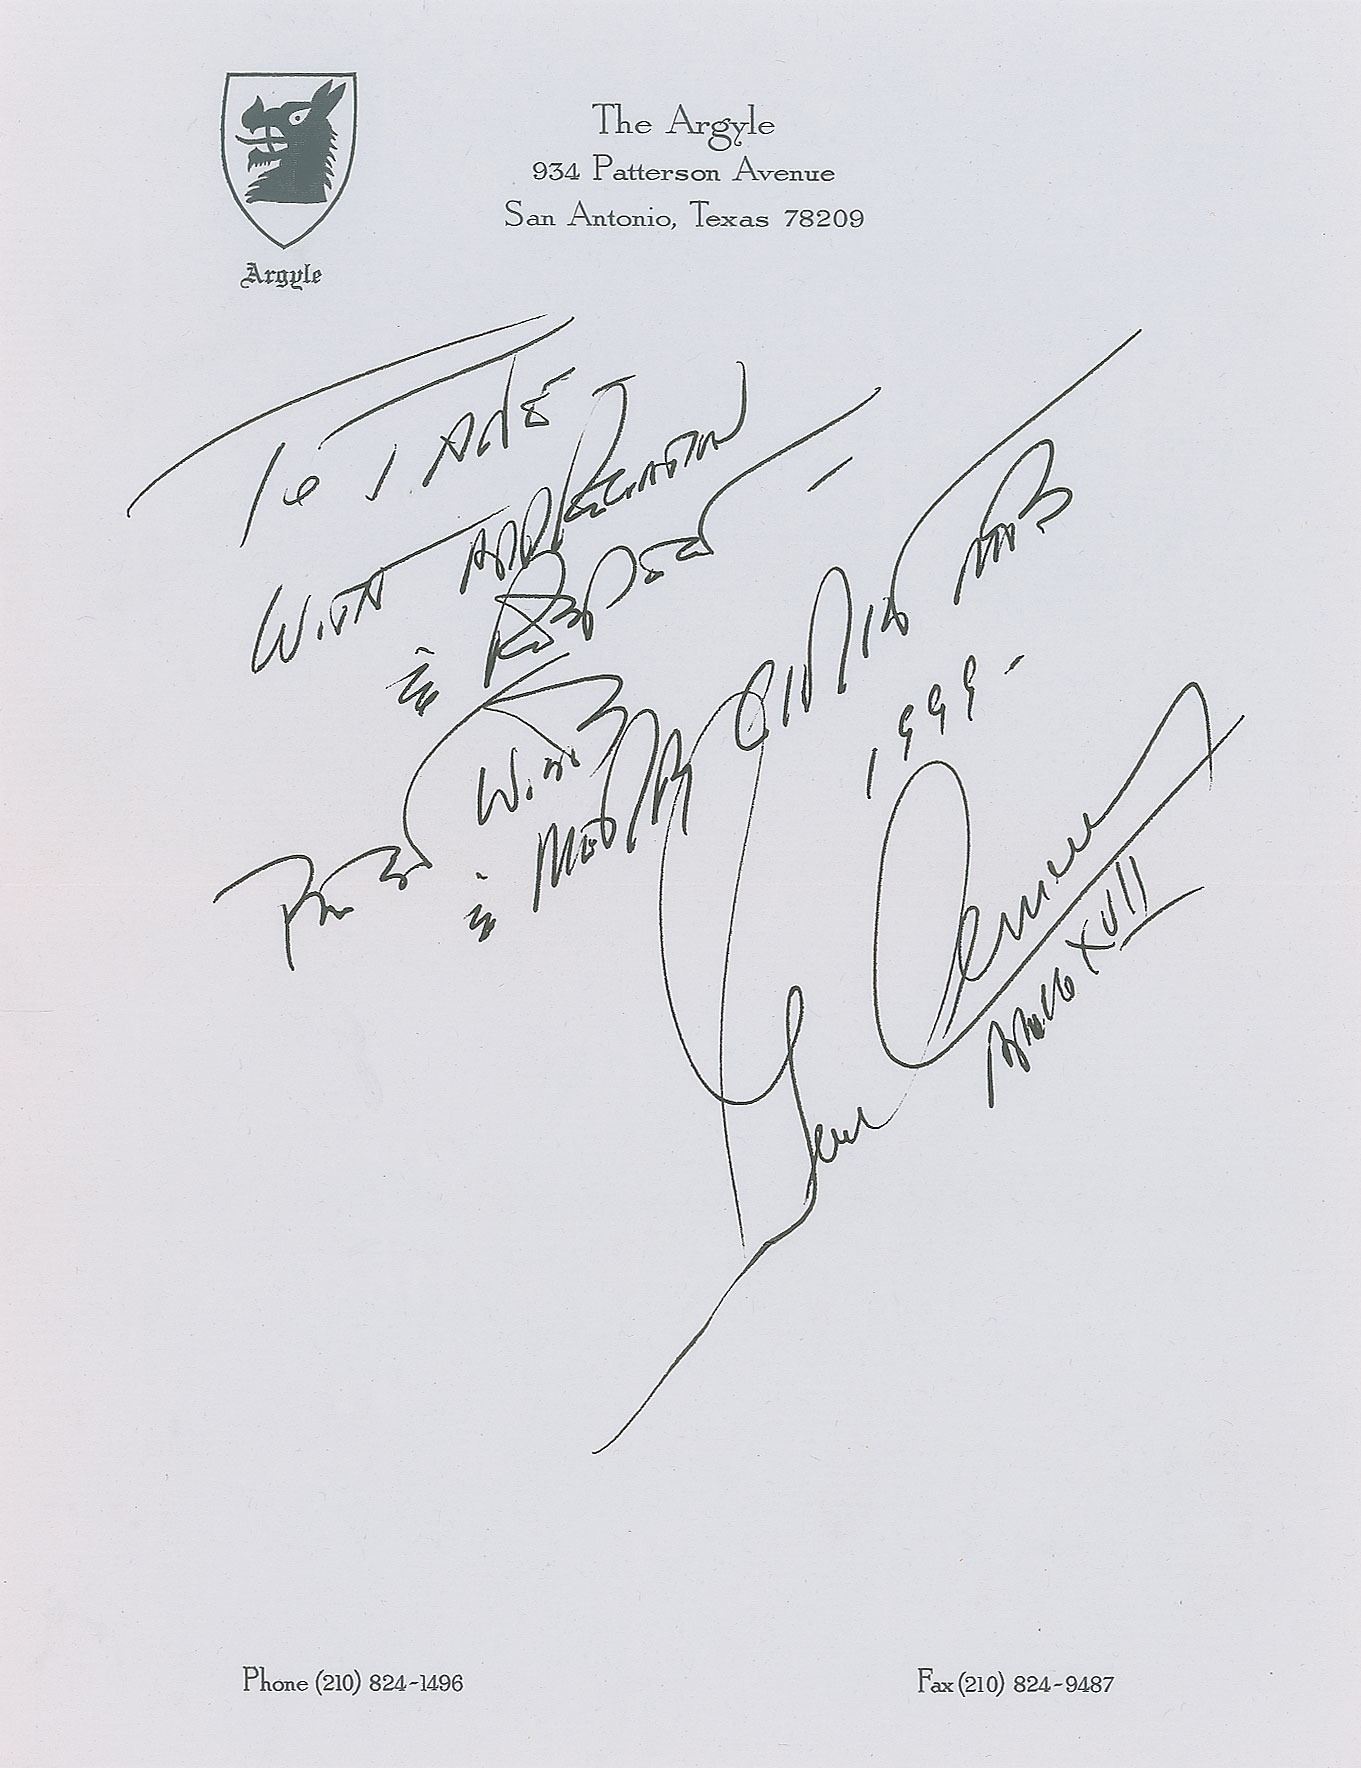 The Argyle
934 Patterson Avenue
San Antonio, Texas 78209
Argyle
To Jane
With Appreciation
& Respect -
Best Wishes
1999 -
Gene Cernan
Apollo XVII
Phone (210) 824-1496
Fax (210) 824-9487